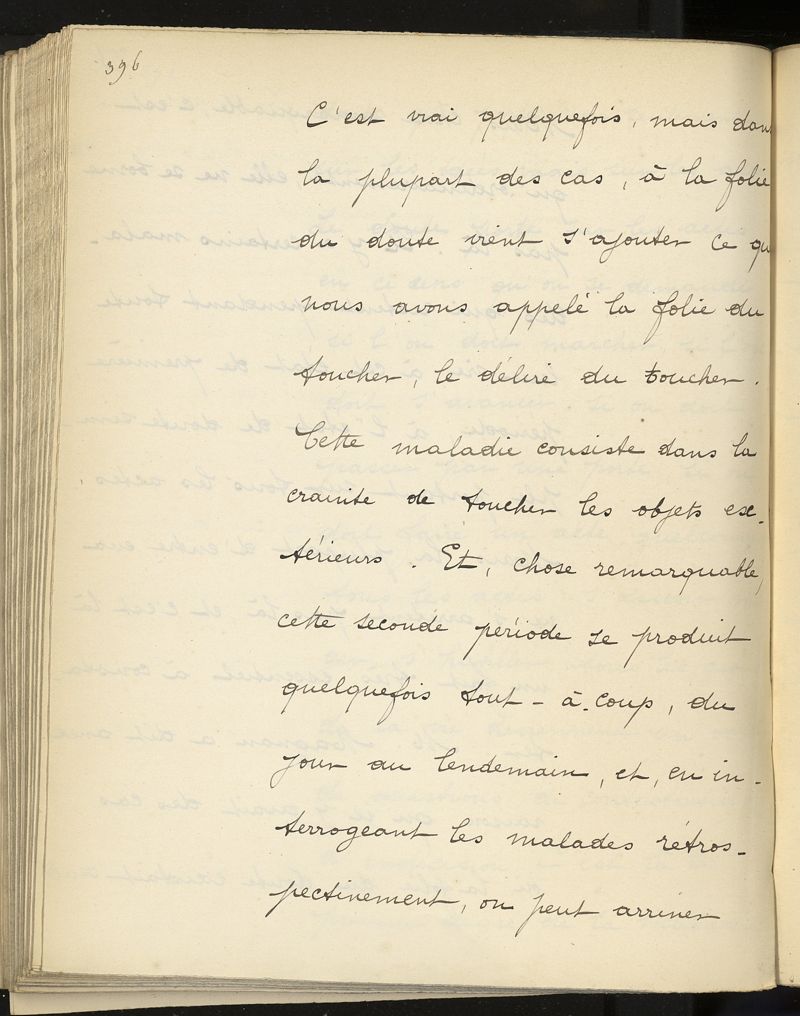 396
C'est vrai quelquefois, mais dans
la plupart des cas, à la folie
du doute vient s'ajouter ce qu
nous avons appelé la folie du
toucher, le délire du toucher.
Cette maladie consiste dans la
crainte de toucher les objets ex-
térieurs. Et, chose remarquable,
cette seconde période se produit
quelquefois tout-à-coup, du
jour au lendemain, et, en in-
terrogeant les malades rétros-
pectivement, on peut arriver